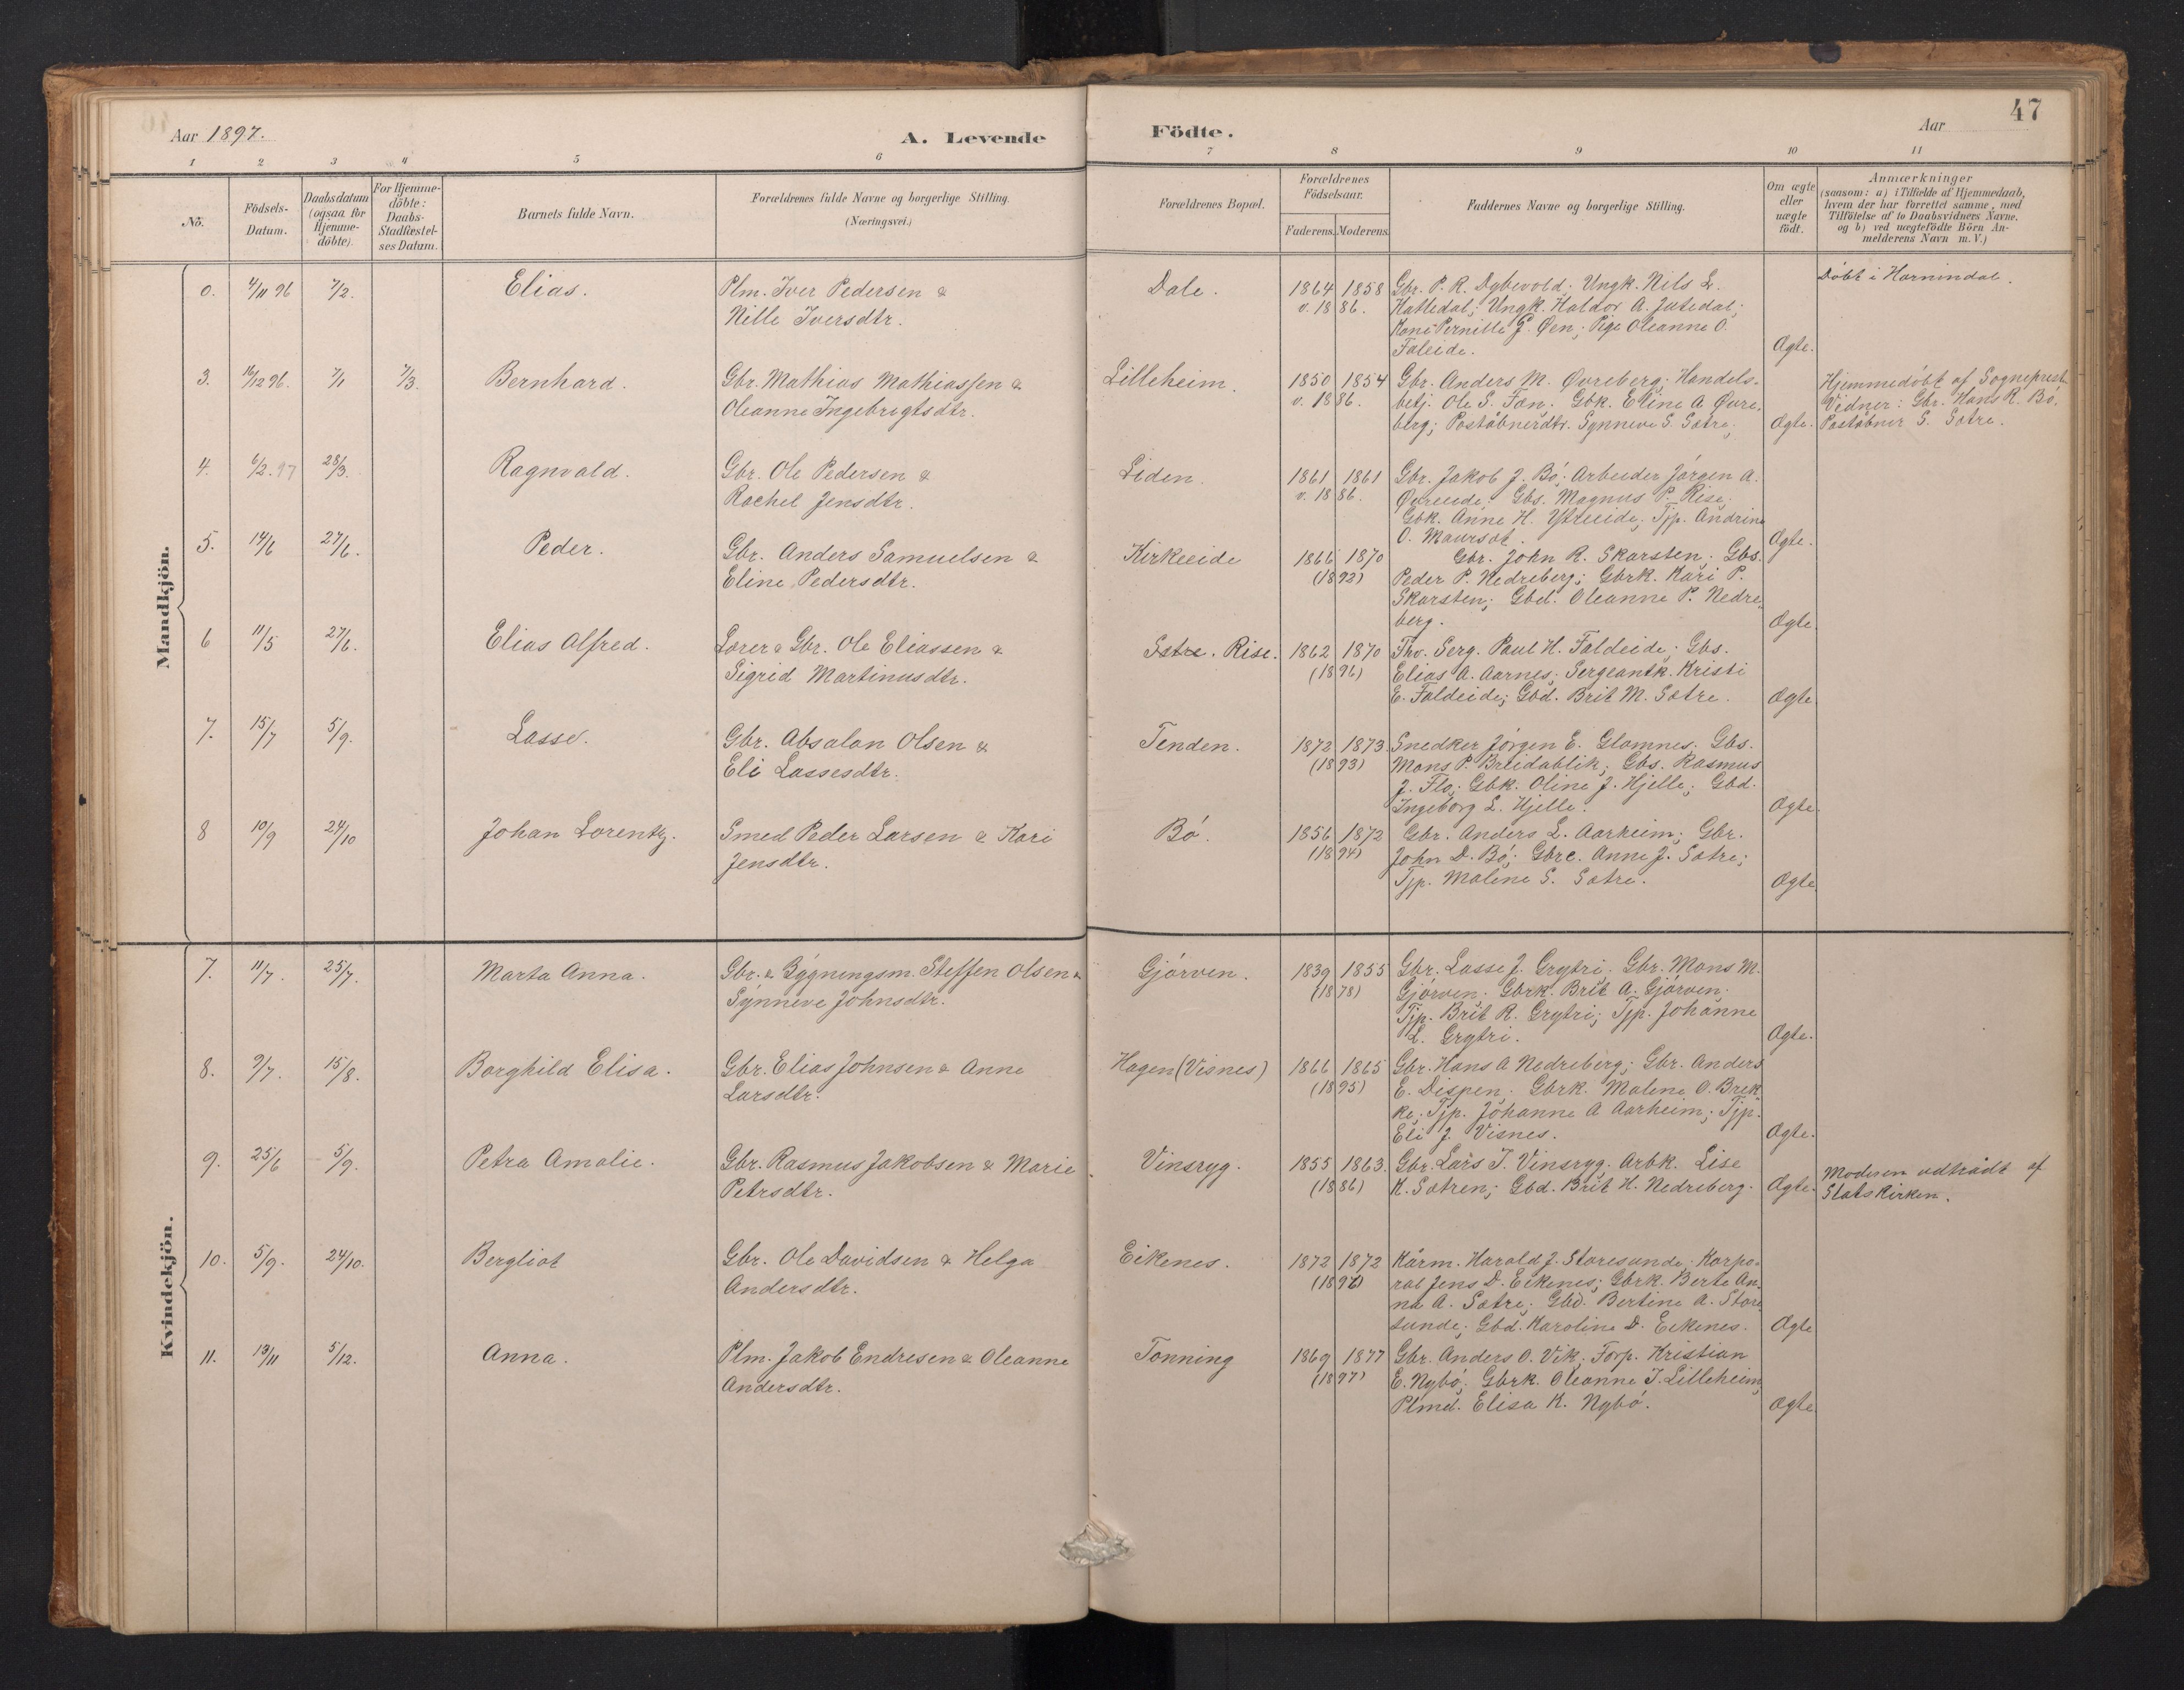 Aar 1897.
A. Levende
Födte.
Aar
47
1 2 3 4 5 6 7 8 9 10 11
No.
Födsels-
Datum.
Daabsdatum
(ogsaa for
Hjemme-
döbte).
For Hjemme-
döbte:
Daabs-
Stadfæstel-
ses Datum.
Barnets fulde Navn.
Forældrenes fulde Navne og borgerlige Stilling.
(Næringsvei.)
Forældrenes Bopæl.
Forældrenes
Födselsaar.
Faderens. Moderens.
Faddernes Navne og borgerlige Stilling.
Om ægte
eller
uægte
födt.
Anmærkninger
(saasom: a) i Tilfælde af Hjemmedaab,
hvem der har forrettet samme, med
Tilföielse af to Daabsvidners Navne,
og b) ved uægtefödte Börn An-
melderens Navn m. V.)
Mandkjön.
0. 4/11 96 7/2. Elias. Plm. Iver Pedersen & Dale. 1864 1858 Gbr. P. R. Dybvold; Ungk. Nils L. Döbt i Hornindal.
Nille Iversdtr. v. 1886. Hattedal; Ungk. Haldor A. Jutedal;
Kone Pernille J. Øen; Pige Oleanne O.
Faleide. Ægte.
3. 16/12 96. 7/1 7/3. Bernhard. Gbr. Mathias Mathiassen & Lilleheim. 1850 1854 Gbr. Anders M. Øvreberg; Handels- Hjemmedöbt af Sogneprest.
Oleanne Ingebrigtsdtr. v. 1886. betj. Ole S. Fæn; Gbk. Eline A Øvre- Vidner: Gbr. Hans R. Bö.
berg; Poståbnerdtr. Synneve S. Sætre. Ægte. Postabner S. Sætre.
4. 6/2. 97 28/3. Ragnvald. Gbr. Ole Pedersen & Liden. 1861 1861 Gbr. Jakob J. Bö; Arbeider Jörgen A.
Rachel Jensdtr. v. 1886. Øvreeide; Gbs. Magnus P. Rise;
Gbk. Anne H. Ytreeide; Tjp. Andrine
O. Maursæt. Ægte.
5. 14/6 27/6. Peder. Gbr. Anders Samuelsen & Kirkeeide 1866 1870 Gbr. John R. Skarsten; Gbs.
Eline Pedersdtr. (1892) Peder P. Nedreberg; Gbrk. Kari P.
Skarsten; Gbd. Oleanne P. Nedre-
berg. Ægte.
6 11/5 27/6. Elias Alfred. Lærer & Gbr. Ole Eliassen & Sætre. Rise. 1862 1870 Thv. Serg. Paul H. Faldeide; Gbs.
Sigrid Martinusdtr. (1896) Elias A. Aarnes; Sergeantk. Kristi
E. Faldeide; Gbd. Brit M. Sætre. Ægte.
7. 15/7 5/9. Lasse. Gbr. Absalon Olsen & Tenden. 1872 1873. Snedker Jörgen E. Glomnes; Gbs.
Eli Lassesdtr. (1893) Mons P. Breidablik; Gbs. Rasmus
J. Flo; Gbk. Oline J. Hjelle; Gbd.
Ingeborg L. Hjelle. Ægte.
8 10/9 24/10 Johan Lorentz. Smed Peder Larsen & Kari Bö. 1856 1872 Gbr. Anders L. Aarheim; Gbr.
Jensdtr. (1894) John D. Bö; Gbre. Anne J. Sætre;
Tjp. Malene S. Sætre. Ægte.
Kvindekjön.
7. 11/7. 25/7. Marta Anna. Gbr. & Bygningsm. Steffen Olsen & Gjörven. 1839 1855 Gbr. Lasse J. Grytri; Gbr. Mons M.
Synneve Johnsdtr. (1878) Gjörven; Gbrk. Brit A. Gjörven;
Tjp. Brit R. Grytri; Tjp. Johanne
L. Grytri. Ægte.
8. 9/7. 15/8. Borghild Elisa. Gbr. Elias Johnsen & Anne Hagen (Visnes) 1866 1865 Gbr. Hans A Nedreberg; Gbr. Anders
Larsdtr. (1895) E. Dispen; Gbrk. Malene O. Brek-
ke; Tjp. Johanne A Aarheim; Tjp.
Eli J. Visnes. Ægte.
9. 25/6 5/9. Petra Amalie. Gbr. Rasmus Jakobsen & Marie Vinsryg. 1855 1863. Gbr. Lars J. Vinsryg. Arbk. Lise Moderen udtrådt af
Petrsdtr. (1886) K. Sætren; Gbd. Brit H. Nedreberg. Ægte. Statskirken.
10. 5/9. 24/10. Bergliot Gbr. Ole Davidsen & Helga Eikenes. 1872 1872 Kårm. Harald J. Storesunde; Korpo-
Andersdtr. (1896) ral Jens D. Eikenes; Gbrk. Berte An-
na A. Sætre; Gbd. Bertine A. Store-
sunde; Gbd. Karoline D. Eikenes. Ægte
11. 13/11 5/12. Anna. Plm. Jakob Endresen & Oleanne Tonning 1869 1877 Gbr. Anders O. Vik; Forp. Kristian
Andersdtr. (1897) E. Nybö; Gbrk. Oleanne J. Lilleheim;
Plmd. Elisa K. Nybö. Ægte.